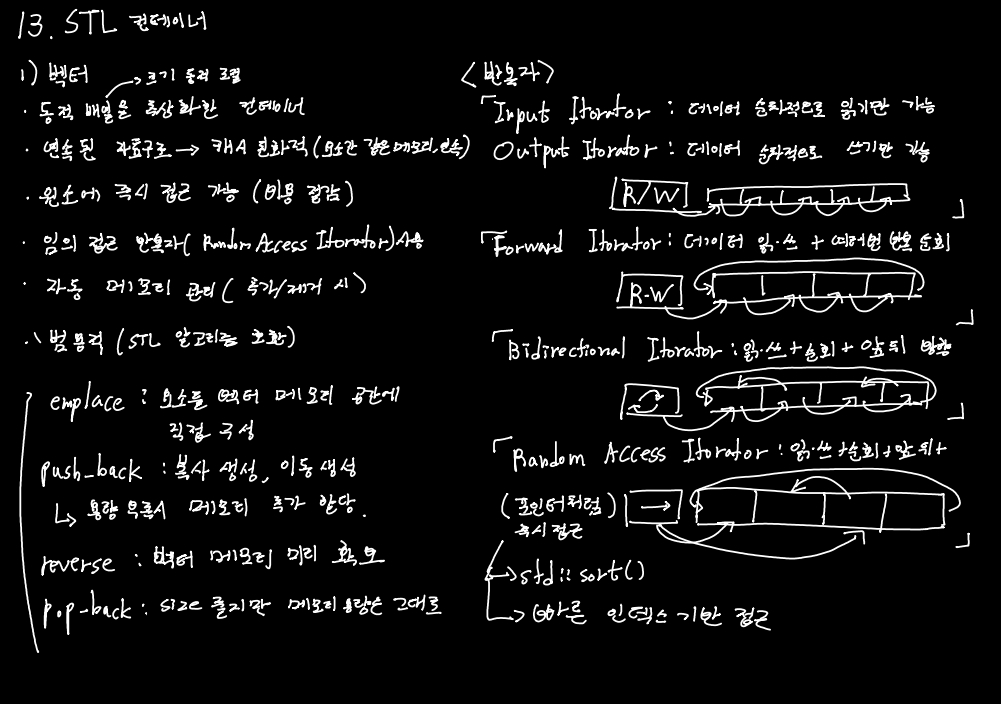 13. STL 컨테이너
1) 벡터
→ 크기 동적 조절
· 동적 배열을 추상화한 컨테이너
· 연속된 자료구조 → 캐시 친화적 (요소간 같은 메모리, 연속)
· 원소에 즉시 접근 가능 (비용 절감)
· 임의 접근 반복자( Random Access Itorator) 사용
· 자동 메모리 관리 ( 추가/제거 시 )
· 범용적 (STL 알고리즘 호환)
emplace : 요소를 벡터 메모리 공간에
직접 구성
push_back : 복사 생성, 이동 생성
↳ 용량 부족시 메모리 추가 할당.
reverse : 벡터 메모리 미리 확보
pop-back : size 줄지만 메모리 용량은 그대로
<반복자>
Input Itorator : 데이터 순차적으로 읽기만 가능
Output Itorator : 데이터 순차적으로 쓰기만 가능
R/W
Forward Itorator : 데이터 읽·쓰 + 여러번 반복 순회
R-W
Bidirectional Itorator : 읽·쓰+순회+ 앞뒤 방향
Random Access Itorator : 읽·쓰+순회+앞뒤+
(포인터처럼)
즉시접근
→ std::sort()
→ 빠른 인덱스 기반 접근